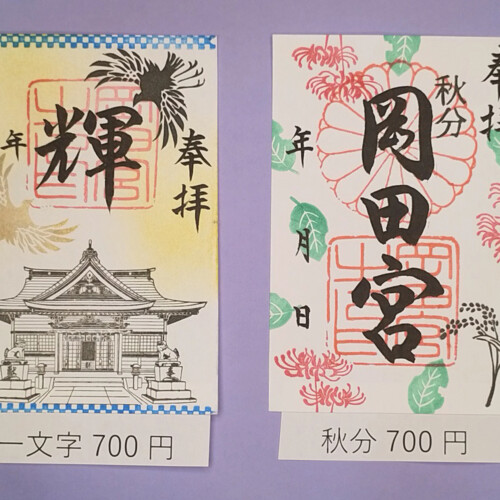 輝
奉拝
年
一文字 700 円
奉拝
秋分
岡田宮
年月日
秋分 700 円